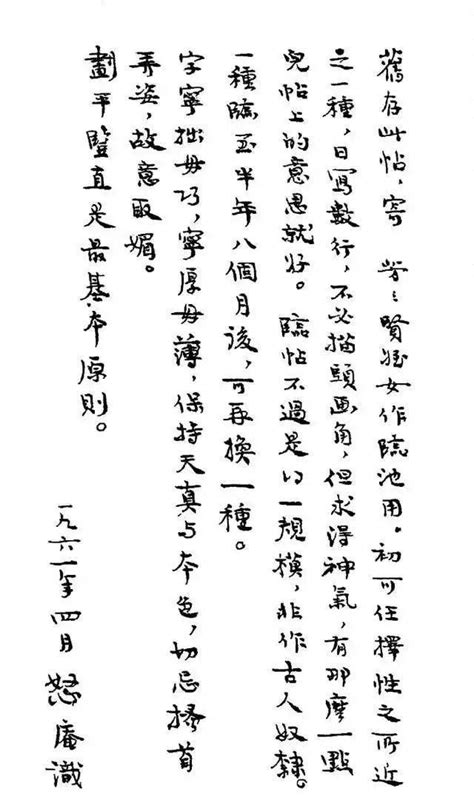 舊存此帖，寄　勞勞賢姪女作臨池用。初可任擇性之所近
之一種，日寫數行，不必描頭画角，但求得神氣，有那麼一點
兒帖上的意思就好。臨帖不過是得一規模，非作古人奴隸。
一種臨至半年八個月後，可再換一種。
字寧拙毋巧，寧厚毋薄，保持天真与本色，切忌搔首
弄姿，故意取媚。
劃平豎直是最基本原則。
一九六一年四月 怒庵識